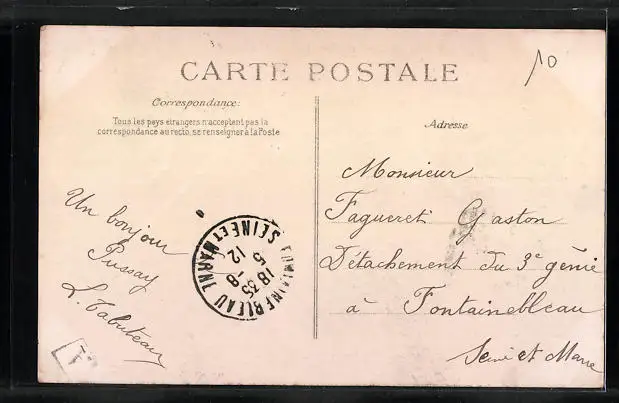 10
CARTE POSTALE
Correspondance:
Tous les pays étrangers n'acceptent pas la
correspondance au recto, se renseigner à la Poste
Adresse
Un bonjour
Pussay
L. Tabuteau
FONTAINEBLEAU
SEINE ET MARNE
18 35
5
12
Monsieur
Fagueret Gaston
Détachement du 3e génie
à Fontainebleau
Seine et Marne